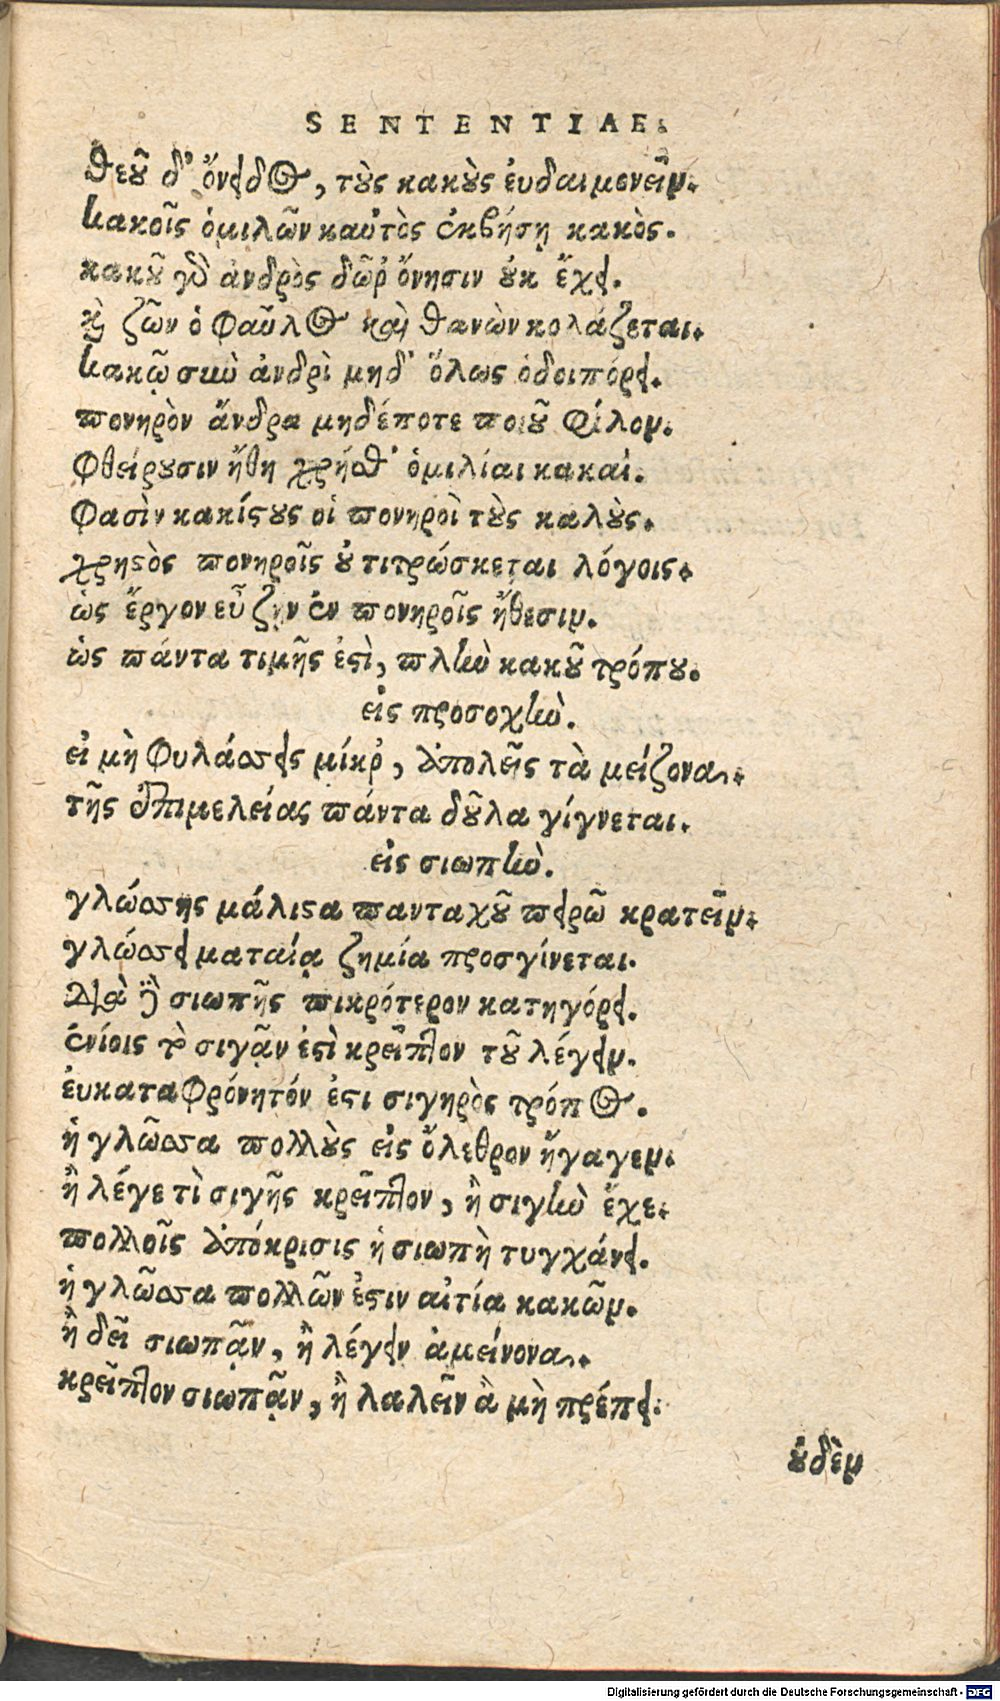 SENTENTIAE.
θεοῦ δ' ὄνειδος, τοὺς κακοὺς ἐυδαιμονεῖν.
κακοῖς ὁμιλῶν καὐτὸς ἐκβήσῃ κακὸς.
κακοῦ γὰρ ἀνδρὸς δῶρ' ὄνησιν οὐκ ἔχει.
καὶ ζῶν ὁ φαῦλος καὶ θανὼν κολάζεται.
κακῷ σὺν ἀνδρὶ μηδ' ὅλως ὁδοιπόρει.
πονηρὸν ἄνδρα μηδέποτε ποιοῦ φίλον.
φθείρουσιν ἤθη χρήσθ' ὁμιλίαι κακαί.
φασὶν κακίστους οἱ πονηροὶ τοὺς καλοὺς.
χρηστὸς πονηροῖς οὐ τιτρώσκεται λόγοις.
ὡς ἔργον εὖ ζῃν ἐν πονηροῖς ἤθεσιν.
ὡς πάντα τιμῆς ἐστὶ, πλὴν κακοῦ τρόπου.
εἰς προσοχὴν.
εἰ μὴ φυλάσσεις μίκρ', ἀπολεῖς τὰ μείζονα.
τῆς ἐπιμελείας πάντα δοῦλα γίγνεται.
εἰς σιωπὴν.
γλώσσης μάλιστα πανταχοῦ πειρῶ κρατεῖν.
γλώσσει ματαίᾳ ζημία προσγίνεται.
διὰ δὲ σιωπῆς πικρότερον κατηγόρει.
ἐνίοις τὸ σιγᾷν ἐστὶ κρεῖττον τοῦ λέγειν.
ἐυκαταφρόνητόν ἐστι σιγηρὸς τρόπος.
ἡ γλῶσσα πολλοὺς εἰς ὄλεθρον ἤγαγεν.
ἢ λέγε τὶ σιγῆς κρεῖττον, ἢ σιγὴν ἔχε.
πολλοῖς ἀπόκρισις ἡ σιωπὴ τυγχάνει.
ἡ γλῶσσα πολλῶν ἐστιν αἰτία κακῶν.
ἢ δεῖ σιωπᾷν, ἢ λέγειν ἀμείνονα.
κρεῖττον σιωπᾷν, ἢ λαλεῖν ἃ μὴ πρέπει.
οὐδὲν
Digitalisierung gefördert durch die Deutsche Forschungsgemeinschaft - DFG